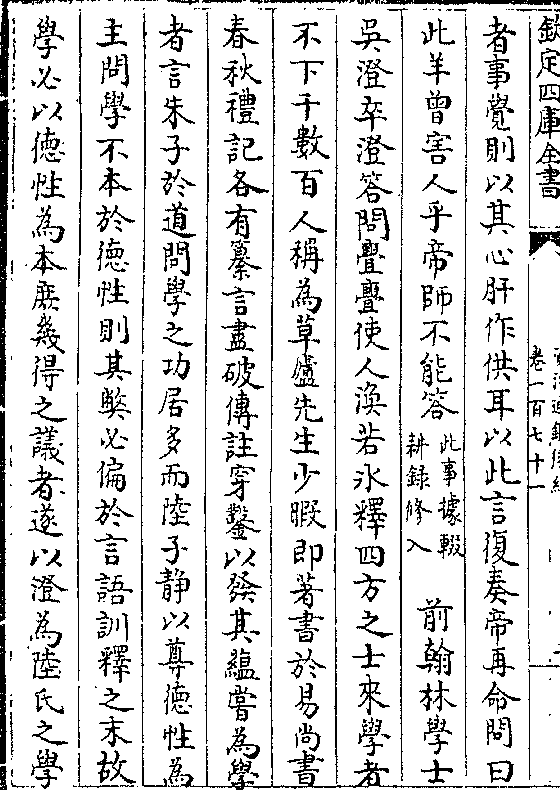 欽定四庫全書
卷一百七十一
者事覺則以其心肝作供耳以此言復奏帝再命問曰
此羊曾害人乎帝師不能答此事據輟耕録修入 前翰林學士
吳澄卒澄答問亹亹使人渙若氷釋四方之士來學者
不下千數百人稱為草廬先生少暇即著書於易尚書
春秋禮記各有纂言盡破傳註穿鑿以發其蘊嘗為學
者言朱子於道問學之功居多而陸子静以尊德性為
主問學不本於德性則其弊必偏於言語訓釋之末故
學必以德性為本庶幾得之議者遂以澄為陸氏之學